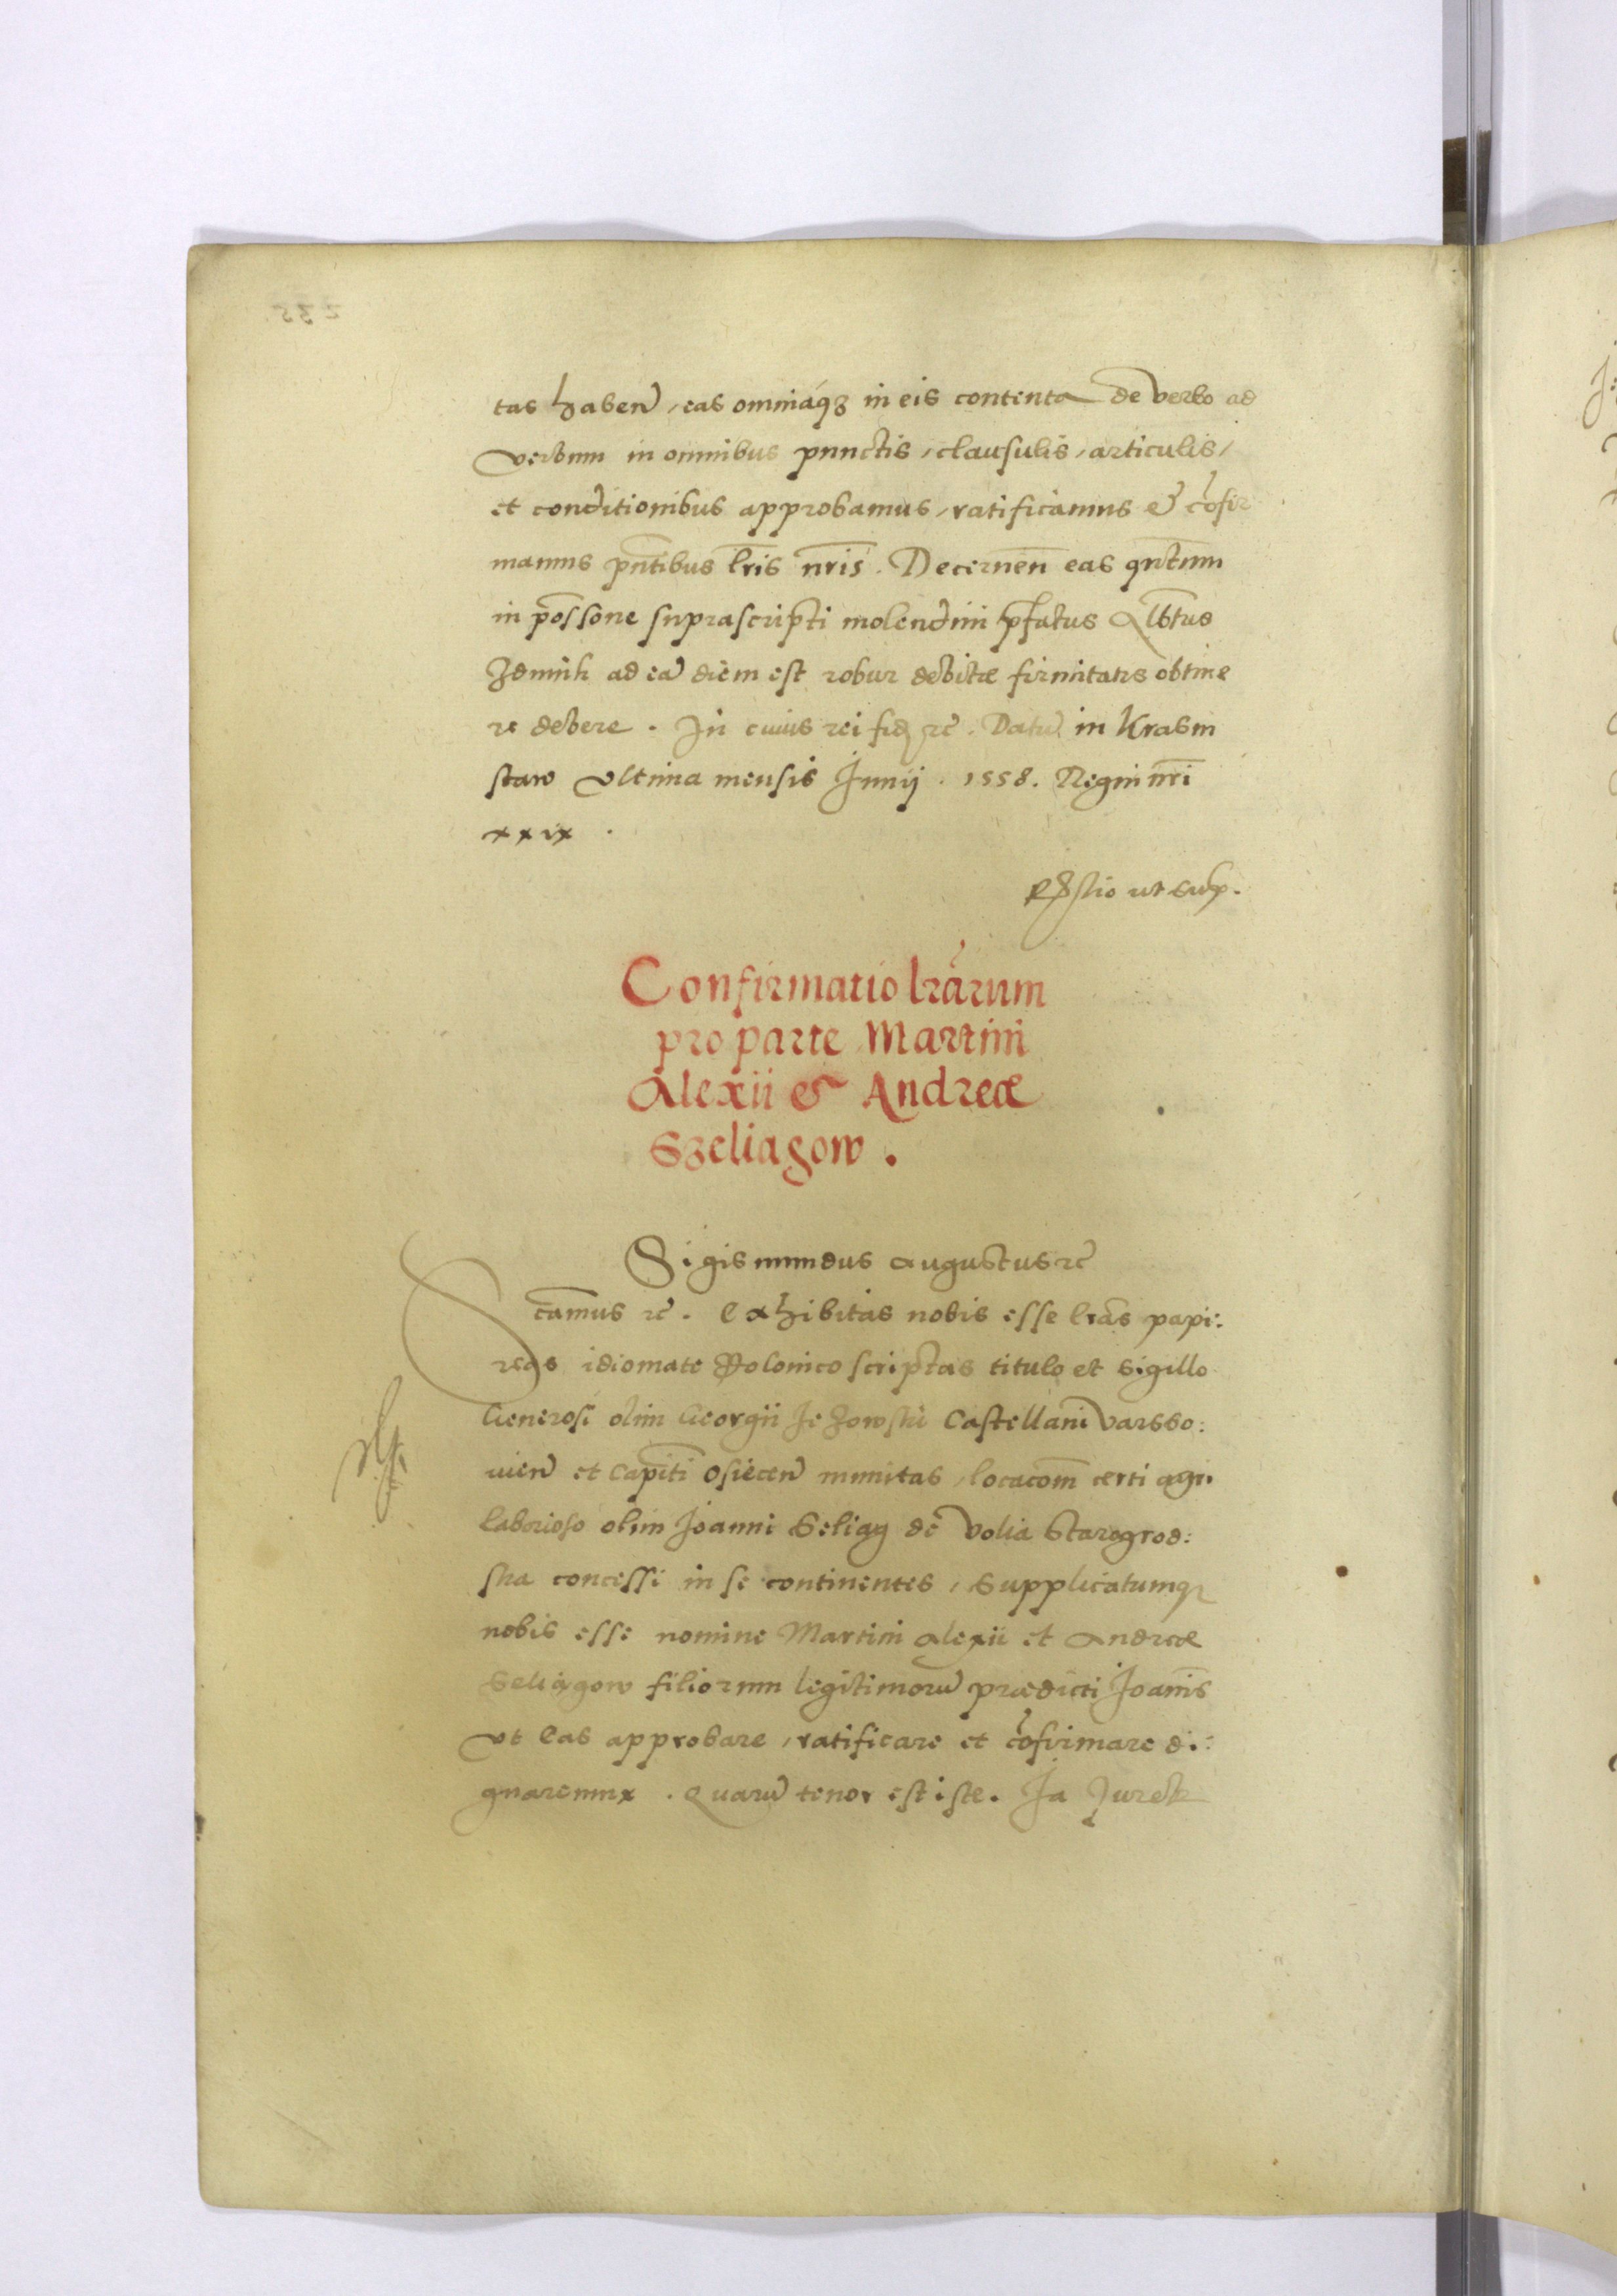 tas haben̄, eas omniaq₃ in eis contenta de verbo ad
verbum in omnibus punctis, clausulis, articulis,
et conditionibus approbamus, ratificamus et c̄ofir
mamus pn̄tibus lr̄is nr̄is. Decernen̄ eas qn̄tum
in possone suprascripti molendini p̄fatus Alb̄tus
Zdunik ad eā diem est robur debitæ firmitatis obtine
re debere. In cuius rei fidē rc̄. Datū in Krasni
staw ultima mensis Junij. 1558. Regni nr̄i
xxix.
ut sup.
Confirmatio lrārum
pro parte Martini
Alexii & Andreæ
Szeliagow.
Sigismundus Augustus rc̄
camus rc̄. Exhibitas nobis esse lrās papi:
reas idiomate Polonico scriptas titulo et sigillo
Generosi olim Georgii Jezowski Castellani Varsso:
vien̄ et Capiti Osiecen̄ munitas, locacom̄ certi agri
laborioso olim Joanni Seliag de Volia Starogrod:
ska concessi in se continentes, supplicatumq₃
nobis esse nomine Martini Alexii et Andreæ
Seliagow filiorum legitimorū prædicti Joan̄is
ut eas approbare, ratificare et c̄ofirmare di:
gnaremur. Quarū tenor est iste. Ja Jurek
235.